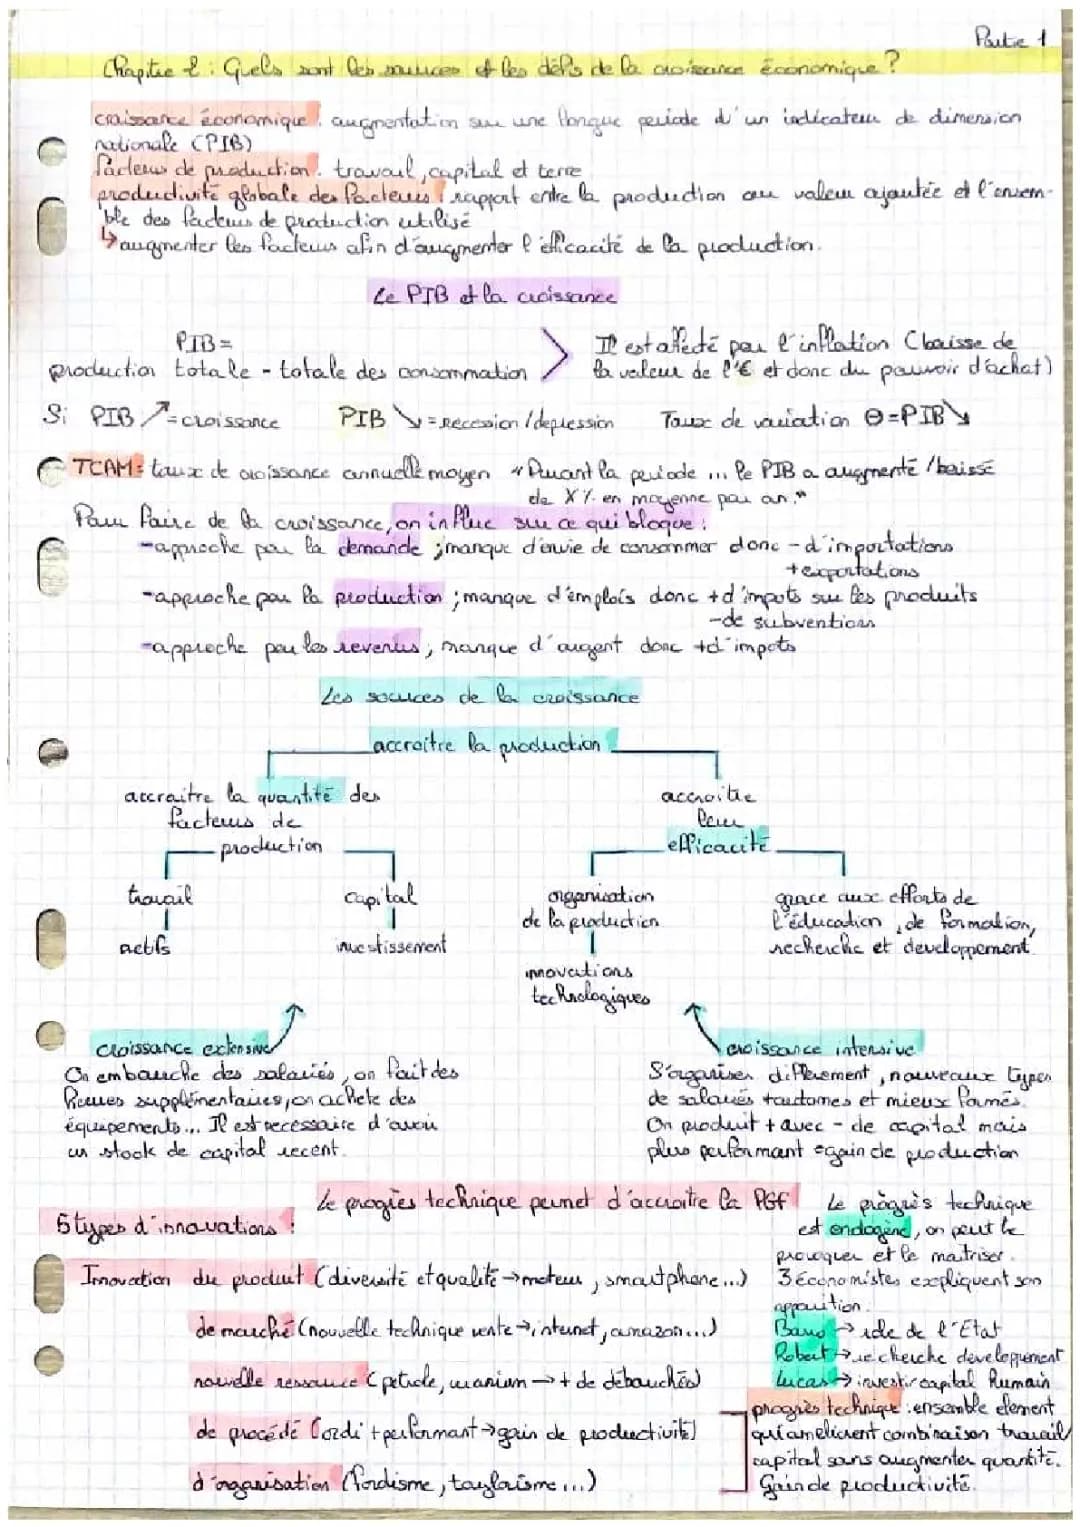 Partie 1
Chapitre 1 : Quels sont les sources et les défis de la croissance économique ?
croissance économique : augmentation sur une longue periode d'un indicateur de dimension
nationale (PIB)
facteurs de production : travail, capital et terre
productivité globale des facteurs : rapport entre la production ou valeur ajoutée et l'ensem-
ble des facteurs de production utilisé
↳ augmenter les facteurs afin d'augmenter l'efficacité de la production.
Le PIB et la croissance
PIB =
production totale - totale des consommation
Il est affecté par l'inflation (baisse de
la valeur de l'€ et donc du pouvoir d'achat)
Si PIB ↗ = croissance PIB ↘ = recession / depression Taux de variation ⊖ = PIB ↘
TCAM : taux de croissance annuelle moyen "Durant la periode ... le PIB a augmenté / baissé
de X % en moyenne par an."
Pour faire de la croissance, on influe sur ce qui bloque :
- approche par la demande ; manque d'envie de consommer donc - d'importations
+ exportations
- approche par la production ; manque d'emplois donc + d'impots sur les produits
- de subventions
- approche par les revenus ; manque d'argent donc + d'impots
Les sources de la croissance
accroitre la production
accraitre la quantité des
facteurs de
production
accroitre
leur
efficacité
travail
actifs
capital
investissement
organisation
de la production
innovations
technologiques
grace aux efforts de
l'éducation, de formation,
recherche et developpement
croissance extensive
On embauche des salariés, on fait des
heures supplémentaires, on achete des
équipements... Il est necessaire d'avoir
un stock de capital recent.
croissance intensive
S'organiser differement, nouveaux types
de salariés + autonomes et mieux formés.
On produit + avec - de capital mais
plus performant = gain de production
Le progrès technique permet d'accroitre la PGF
5 types d'innovations :
Innovation du produit (diversité et qualité → moteur, smartphone...)
de marché (nouvelle technique vente →, internet, amazon...)
nouvelle ressource (petrole, uranium → + de débouchés)
de procédé (ordi + performant → gain de productivité)
d'organisation (fordisme, taylorisme...)
Le progrès technique
est endogène, on peut le
provoquer et le maitriser.
3 économistes expliquent son
apparition.
Barro → role de l'État
Robert → recherche développement
Lucas → investir capital humain
progrès technique : ensemble element
qui ameliorent combinaison travail/
capital sans augmenter quantité.
Gain de productivité.